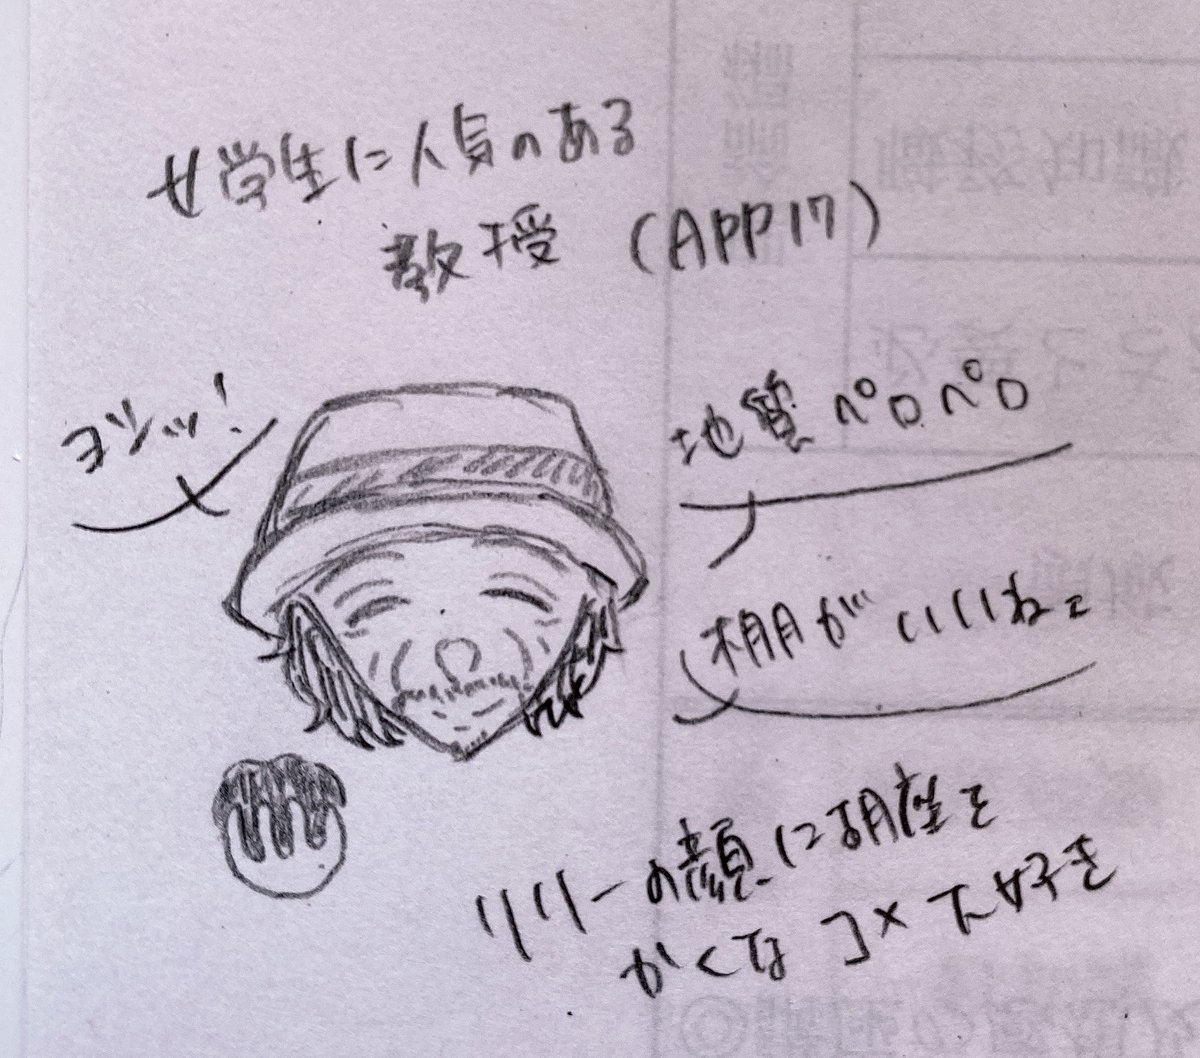 女学生に人気のある
教授 (APP17)
ヨシッ!
地質ペロペロ
棚がいいねこ
リリーの顔に胡座を
かくな コメ大好き